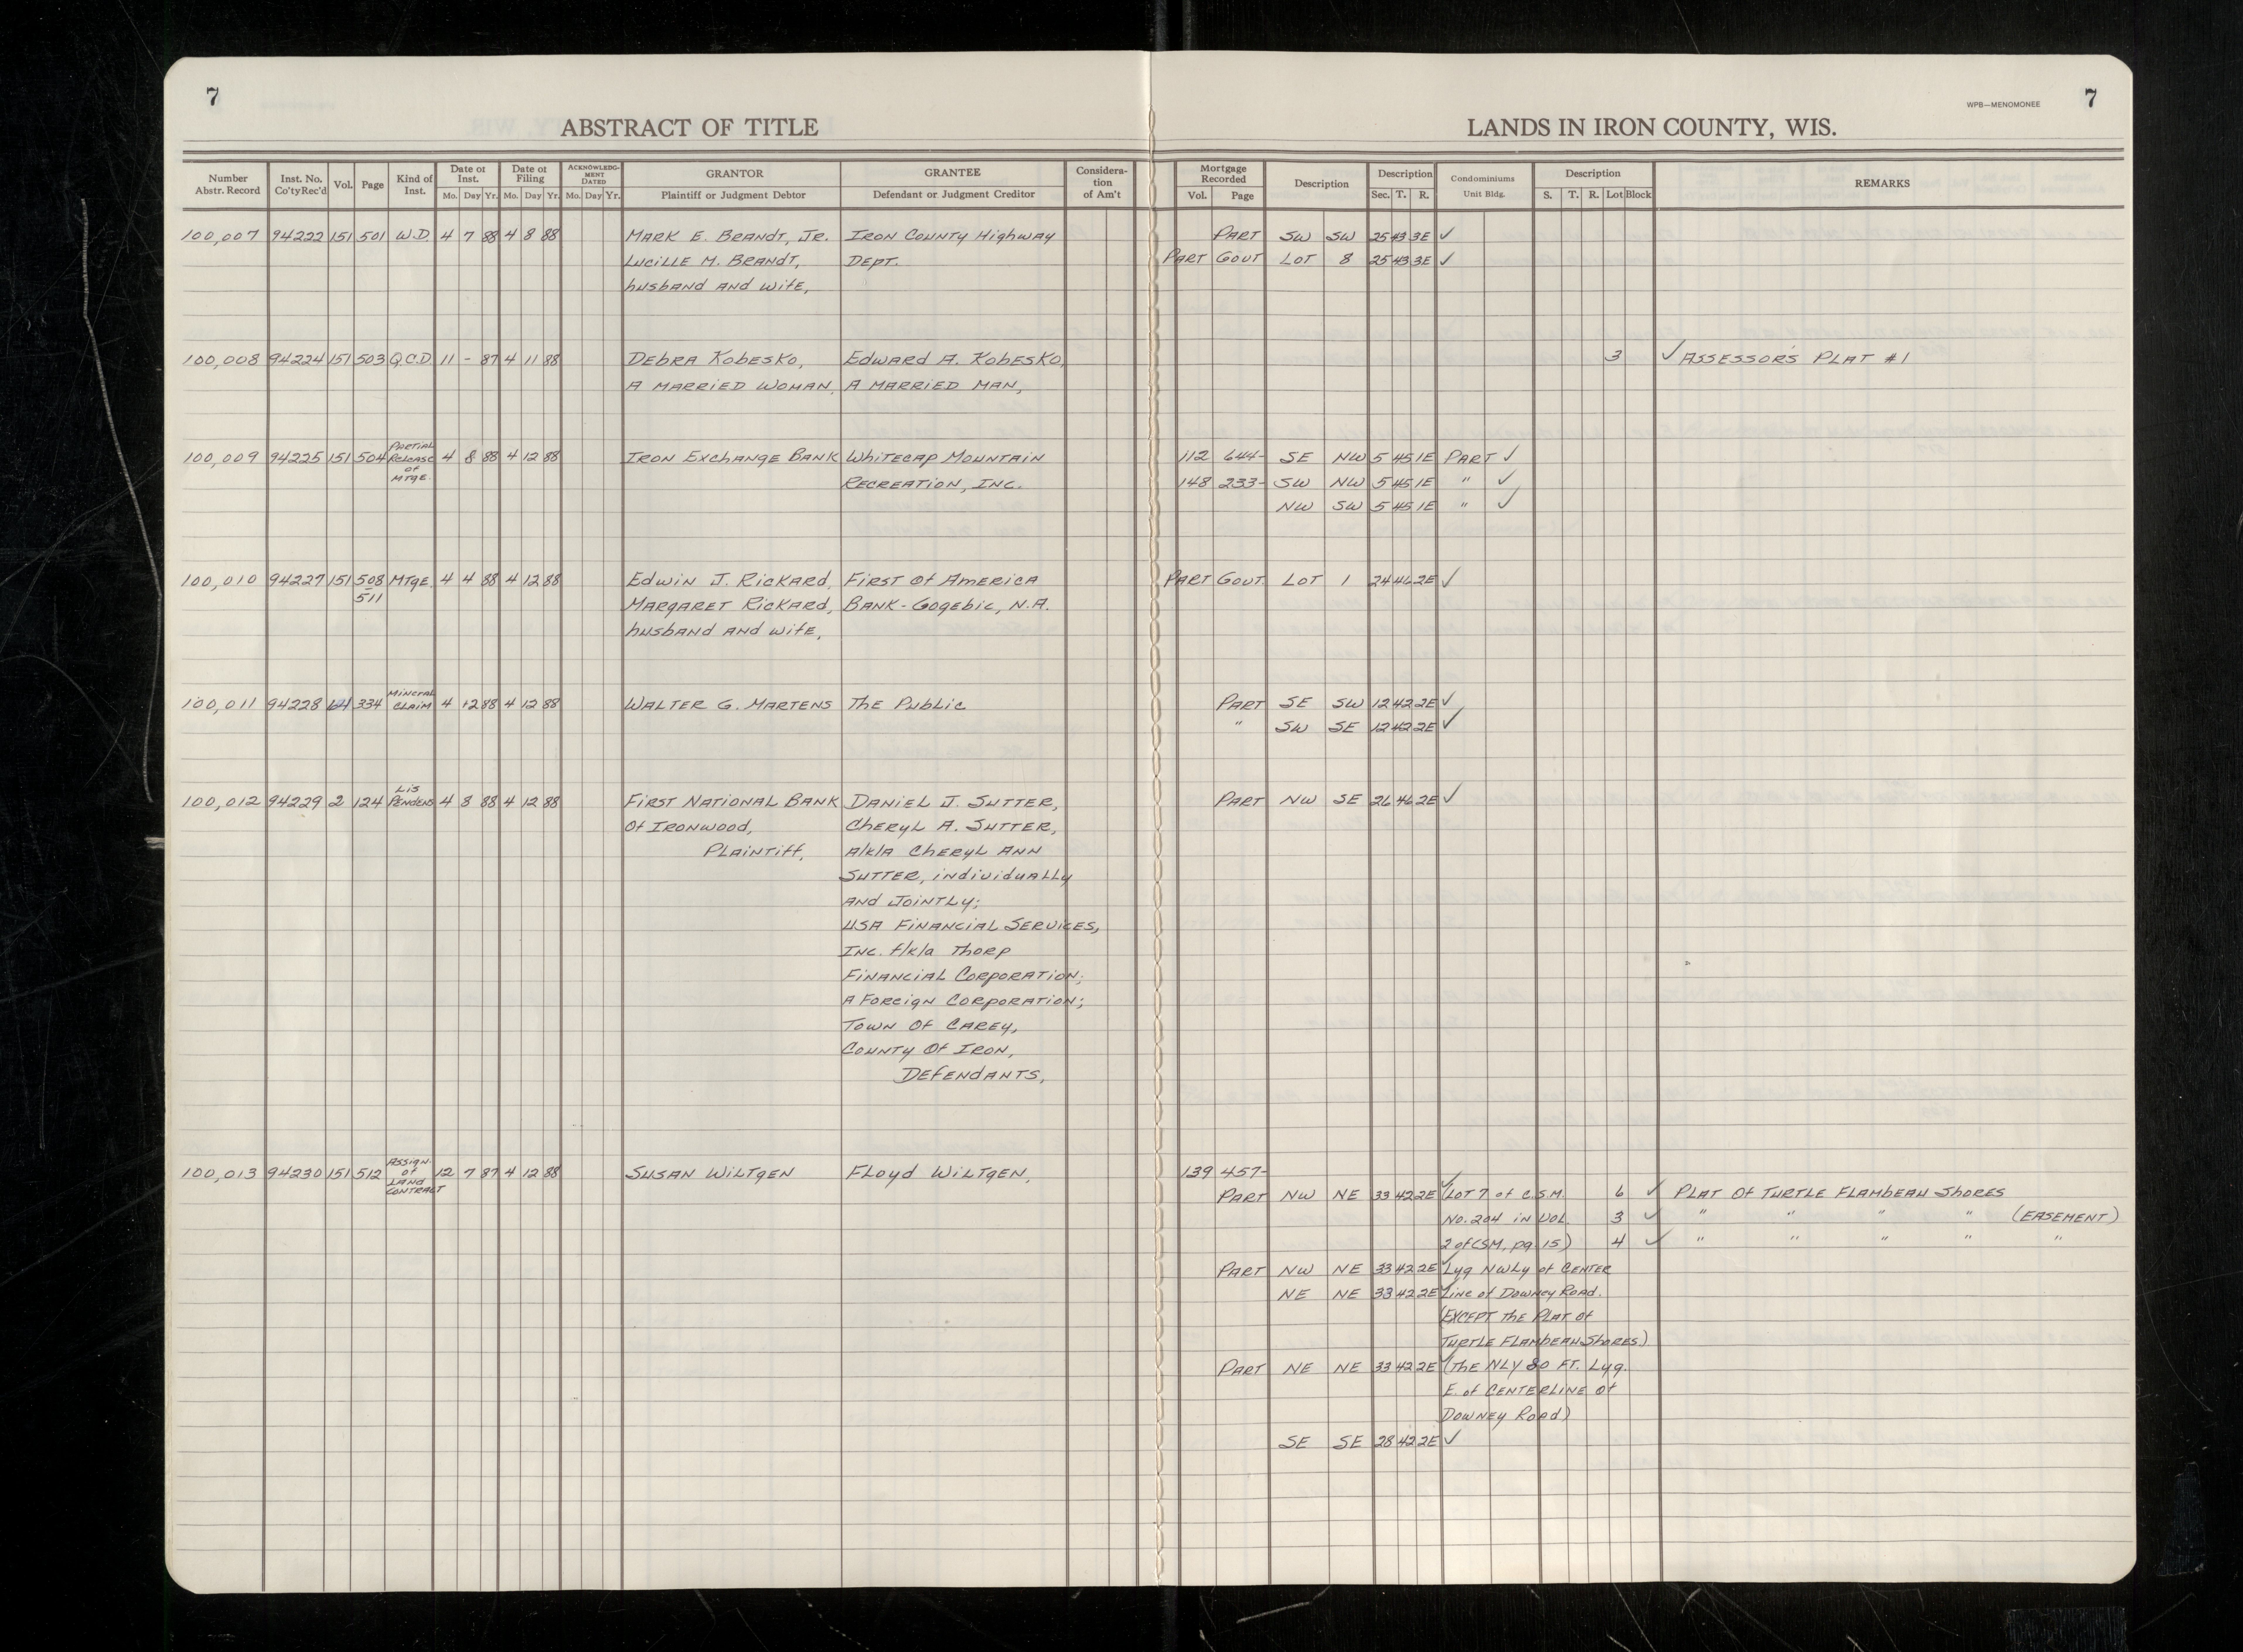 7
7
WPB—MENOMONEE
ABSTRACT OF TITLE
LANDS IN IRON COUNTY, WIS.
Number Abstr. Record | Inst. No. Co'ty Rec'd | Vol. | Page | Kind of Inst. | Date of Inst. Mo. Day Yr. | Date of Filing Mo. Day Yr. | ACKNOWLEDGMENT DATED Mo. Day Yr. | GRANTOR Plaintiff or Judgment Debtor | GRANTEE Defendant or Judgment Creditor | Consideration of Am't | Mortgage Recorded Vol. Page | Description | Description Sec. T. R. | Condominiums Unit Bldg. | Description S. T. R. Lot Block | REMARKS
100,007 94222 151 501 W.D. 4 7 88 4 8 88 MARK E. BRANDT, JR. IRON COUNTY HIGHWAY PART SW SW 25 43 3E ✓
LUCILLE M. BRANDT, DEPT. PART GOVT LOT 8 25 43 3E ✓
husband AND wife,
100,008 94224 151 503 Q.C.D. 11 - 87 4 11 88 DEBRA KOBESKO, EDWARD A. KOBESKO, 3 ✓ ASSESSOR'S PLAT #1
A MARRIED WOMAN, A MARRIED MAN,
100,009 94225 151 504 PARTIAL RELEASE of MTGE. 4 8 88 4 12 88 IRON EXCHANGE BANK WHITECAP MOUNTAIN 112 644- SE NW 5 45 1E PART ✓
RECREATION, INC. 148 233- SW NW 5 45 1E " ✓
NW SW 5 45 1E " ✓
100,010 94227 151 508 - 511 MTGE. 4 4 88 4 12 88 EDWIN J. RICKARD, FIRST OF AMERICA PART GOVT. LOT 1 24 46 2E ✓
MARGARET RICKARD, BANK-GOGEBIC, N.A.
husband AND wife,
100,011 94228 334 MINERAL CLAIM 4 12 88 4 12 88 WALTER G. MARTENS THE PUBLIC PART SE SW 12 42 2E ✓
" SW SE 12 42 2E ✓
100,012 94229 2 124 LIS PENDENS 4 8 88 4 12 88 FIRST NATIONAL BANK DANIEL J. SUTTER, PART NW SE 26 46 2E ✓
OF IRONWOOD, CHERYL A. SUTTER,
PLAINTIFF, A/K/A CHERYL ANN
SUTTER, INDIVIDUALLY
AND JOINTLY;
USA FINANCIAL SERVICES,
INC. F/K/A THORP
FINANCIAL CORPORATION;
A FOREIGN CORPORATION;
TOWN OF CAREY,
COUNTY OF IRON,
DEFENDANTS,
100,013 94230 151 512 ASSIGN. of LAND CONTRACT 12 7 87 4 12 88 SUSAN WILTGEN FLOYD WILTGEN, 139 457-
PART NW NE 33 42 2E ✓ (LOT 7 of C.S.M. 6 ✓ PLAT OF TURTLE FLAMBEAU SHORES
NO. 204 IN VOL. 3 ✓ " " " " (EASEMENT)
2 of CSM, pg. 15) 4 ✓ " " " " "
PART NW NE 33 42 2E ✓ Lyg NWLY of CENTER
NE NE 33 42 2E ✓ Line of Downey Road.
(EXCEPT THE PLAT OF
TURTLE FLAMBEAU SHORES)
PART NE NE 33 42 2E ✓ (THE NLY 80 FT. Lyg.
E. of CENTERLINE OF
DOWNEY ROAD)
SE SE 28 42 2E ✓